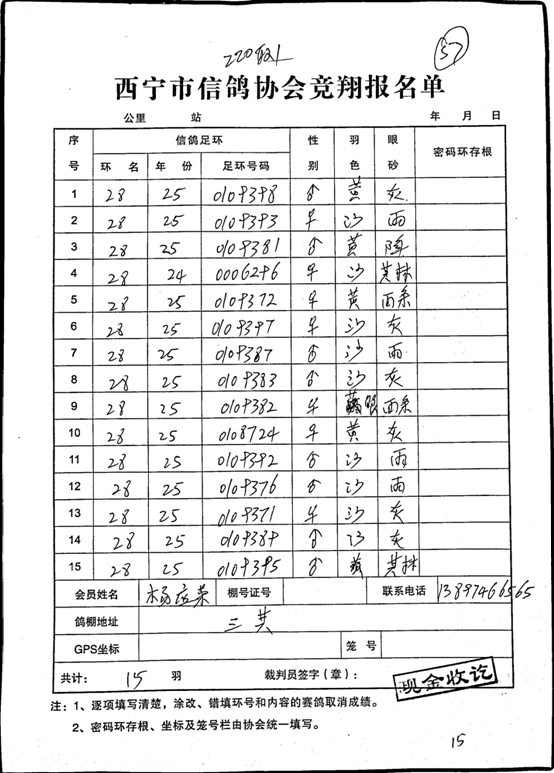 57
西宁市信鸽协会竞翔报名单
公里 站 年 月 日
序号 信鸽足环 性别 羽色 眼砂 密码环存根
环名 年份 足环号码
1 28 25 0109398 ♂ 黄 灰
2 28 25 0109393 ♀ 沙 雨
3 28 25 0109381 ♂ 黄
4 28 24 0006296 ♀ 沙
5 28 25 0109372 ♀ 黄
6 28 25 0109397 ♀ 沙 灰
7 28 25 0109387 ♂ 沙 雨
8 28 25 0109383 ♂ 沙 灰
9 28 25 0109382 ♀
10 28 25 0108724 ♀ 黄 灰
11 28 25 0109392 ♂ 沙 雨
12 28 25 0109376 ♂ 沙 雨
13 28 25 0109371 ♀ 沙 灰
14 28 25 0109389 ♂ 沙 灰
15 28 25 0109395 ♂
会员姓名 杨 荣 棚号证号 联系电话 13897466565
鸽棚地址 三其
GPS坐标 笼号
共计： 15 羽 裁判员签字（章）：
现金收讫
注：1、逐项填写清楚，涂改、错填环号和内容的赛鸽取消成绩。
2、密码环存根、坐标及笼号栏由协会统一填写。
15